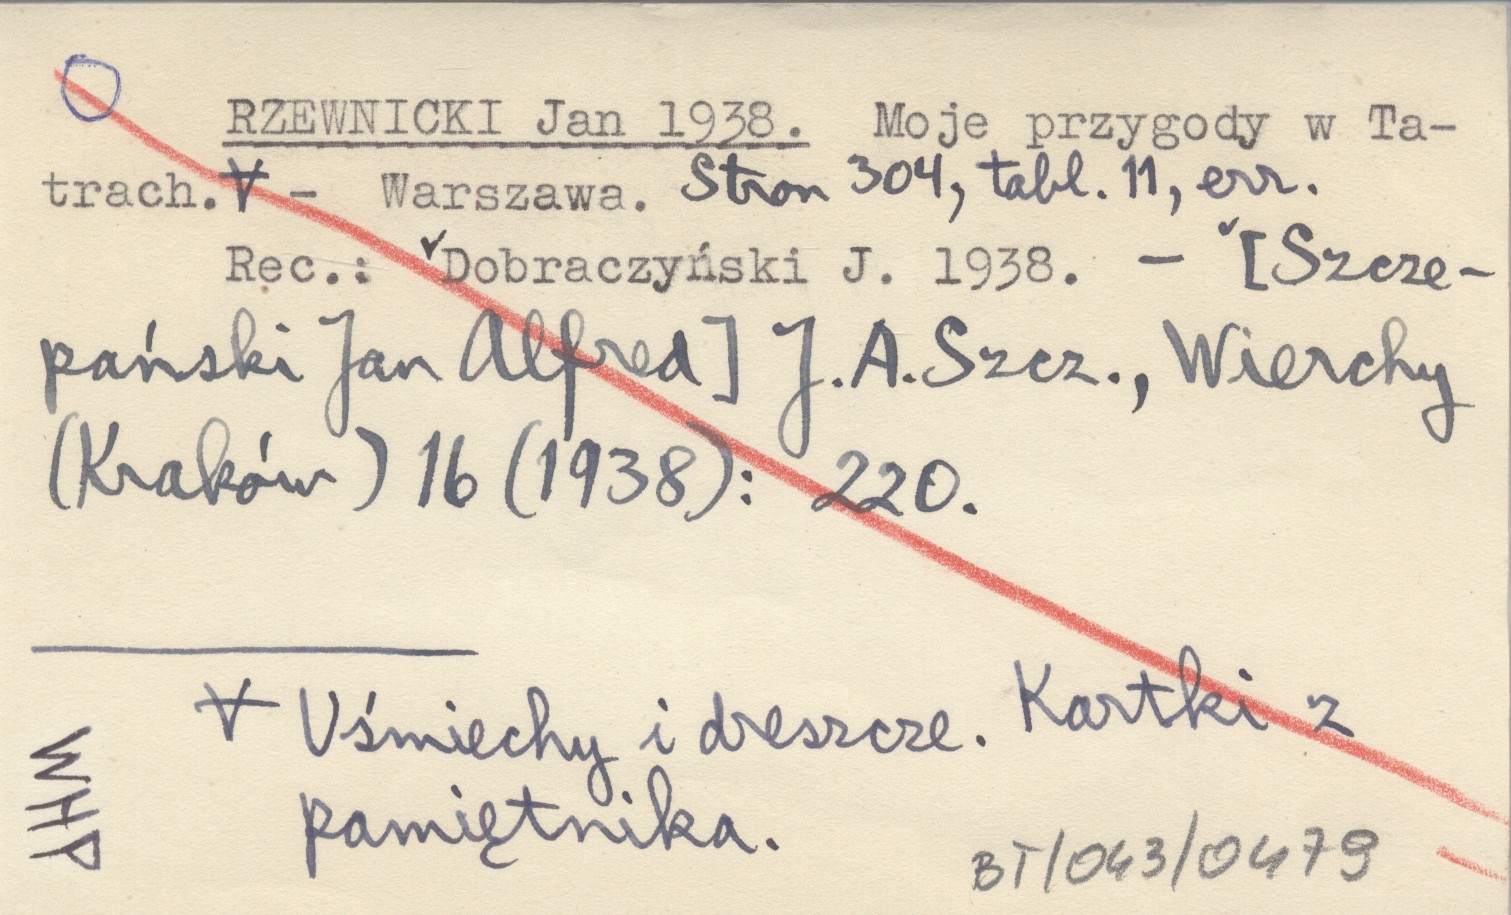 RZEWNICKI Jan 1938. Moje przygody w Ta-
trach. ∀ - Warszawa. Stron 304, tabl. 11, err.
Rec.: Dobraczyński J. 1938. - [Szcze-
pański Jan Alfred] J.A.Szcz., Wierchy
(Kraków) 16 (1938): 220.
∀ Uśmiechy i dreszcze. Kartki z
pamiętnika.
WHP
BT/043/0479